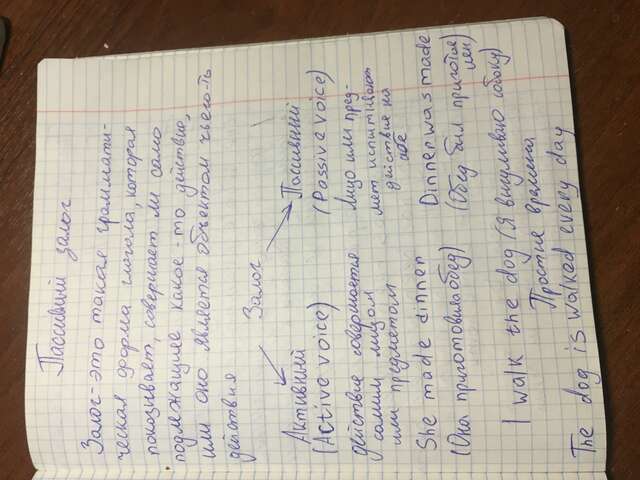 Пассивный залог
Залог - это такая граммати-
ческая форма глагола, которая
показывает, совершает ли само
подлежащее какое-то действие,
или оно является объектом чьего-ть
действия
Залог
Активный
(Active voice)
действие совершается
самим лицом
или предметом
She made dinnen
(Она приготовила обед)
Пассивный
(Passive voice)
лицо или пред-
мет испытывают
действие на
себе
Dinner was made
(Обед был приготов
лен)
I walk the dog (Я выгуливаю собаку)
Простые времена
The dog is walked every day